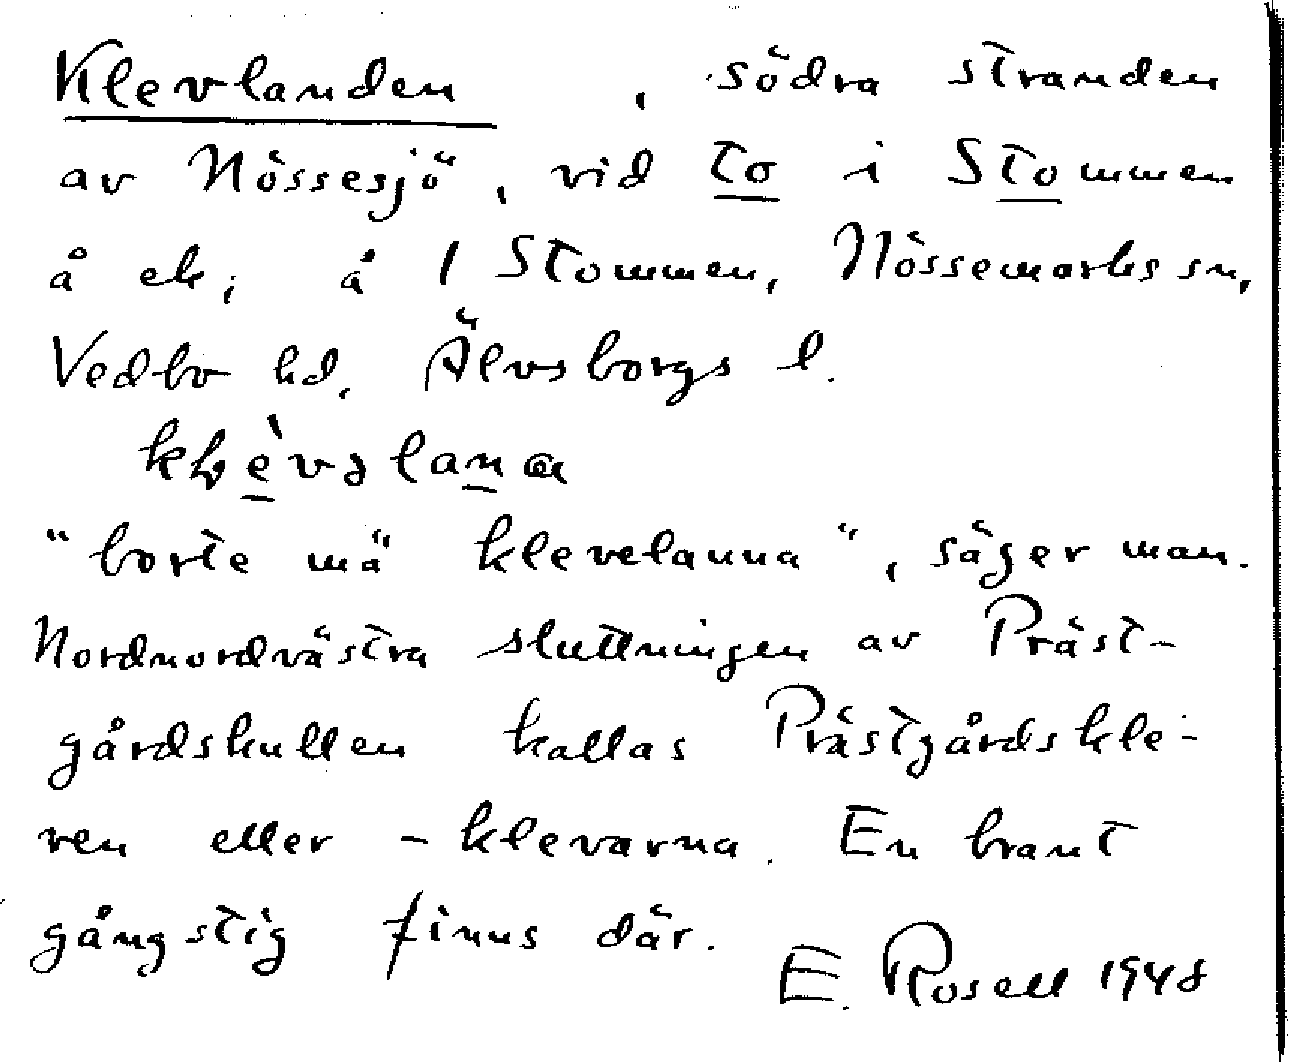 Klevlanden , södra stranden
av Nössesjö, vid to i Stommen
å ek; å 1 Stommen, Nössemarks sn,
Vedbo hd, Älvsborgs l.
"borte mä klevelanna", säger man.
Nordnordvästra sluttningen av Präst-
gårdskullen kallas Prästgårdskle-
ven eller -klevarna. En brant
gångstig finns där.
E. Rosell 1948